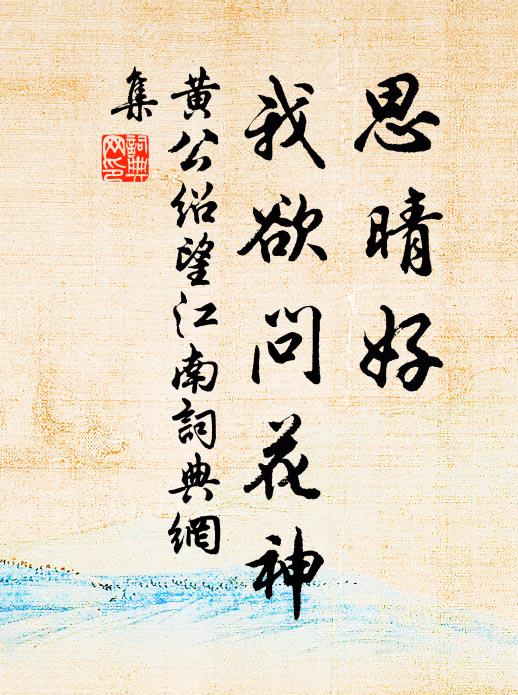 思晴好
我欲問花神
黄公紹望江南詞典網
集
詞典网印